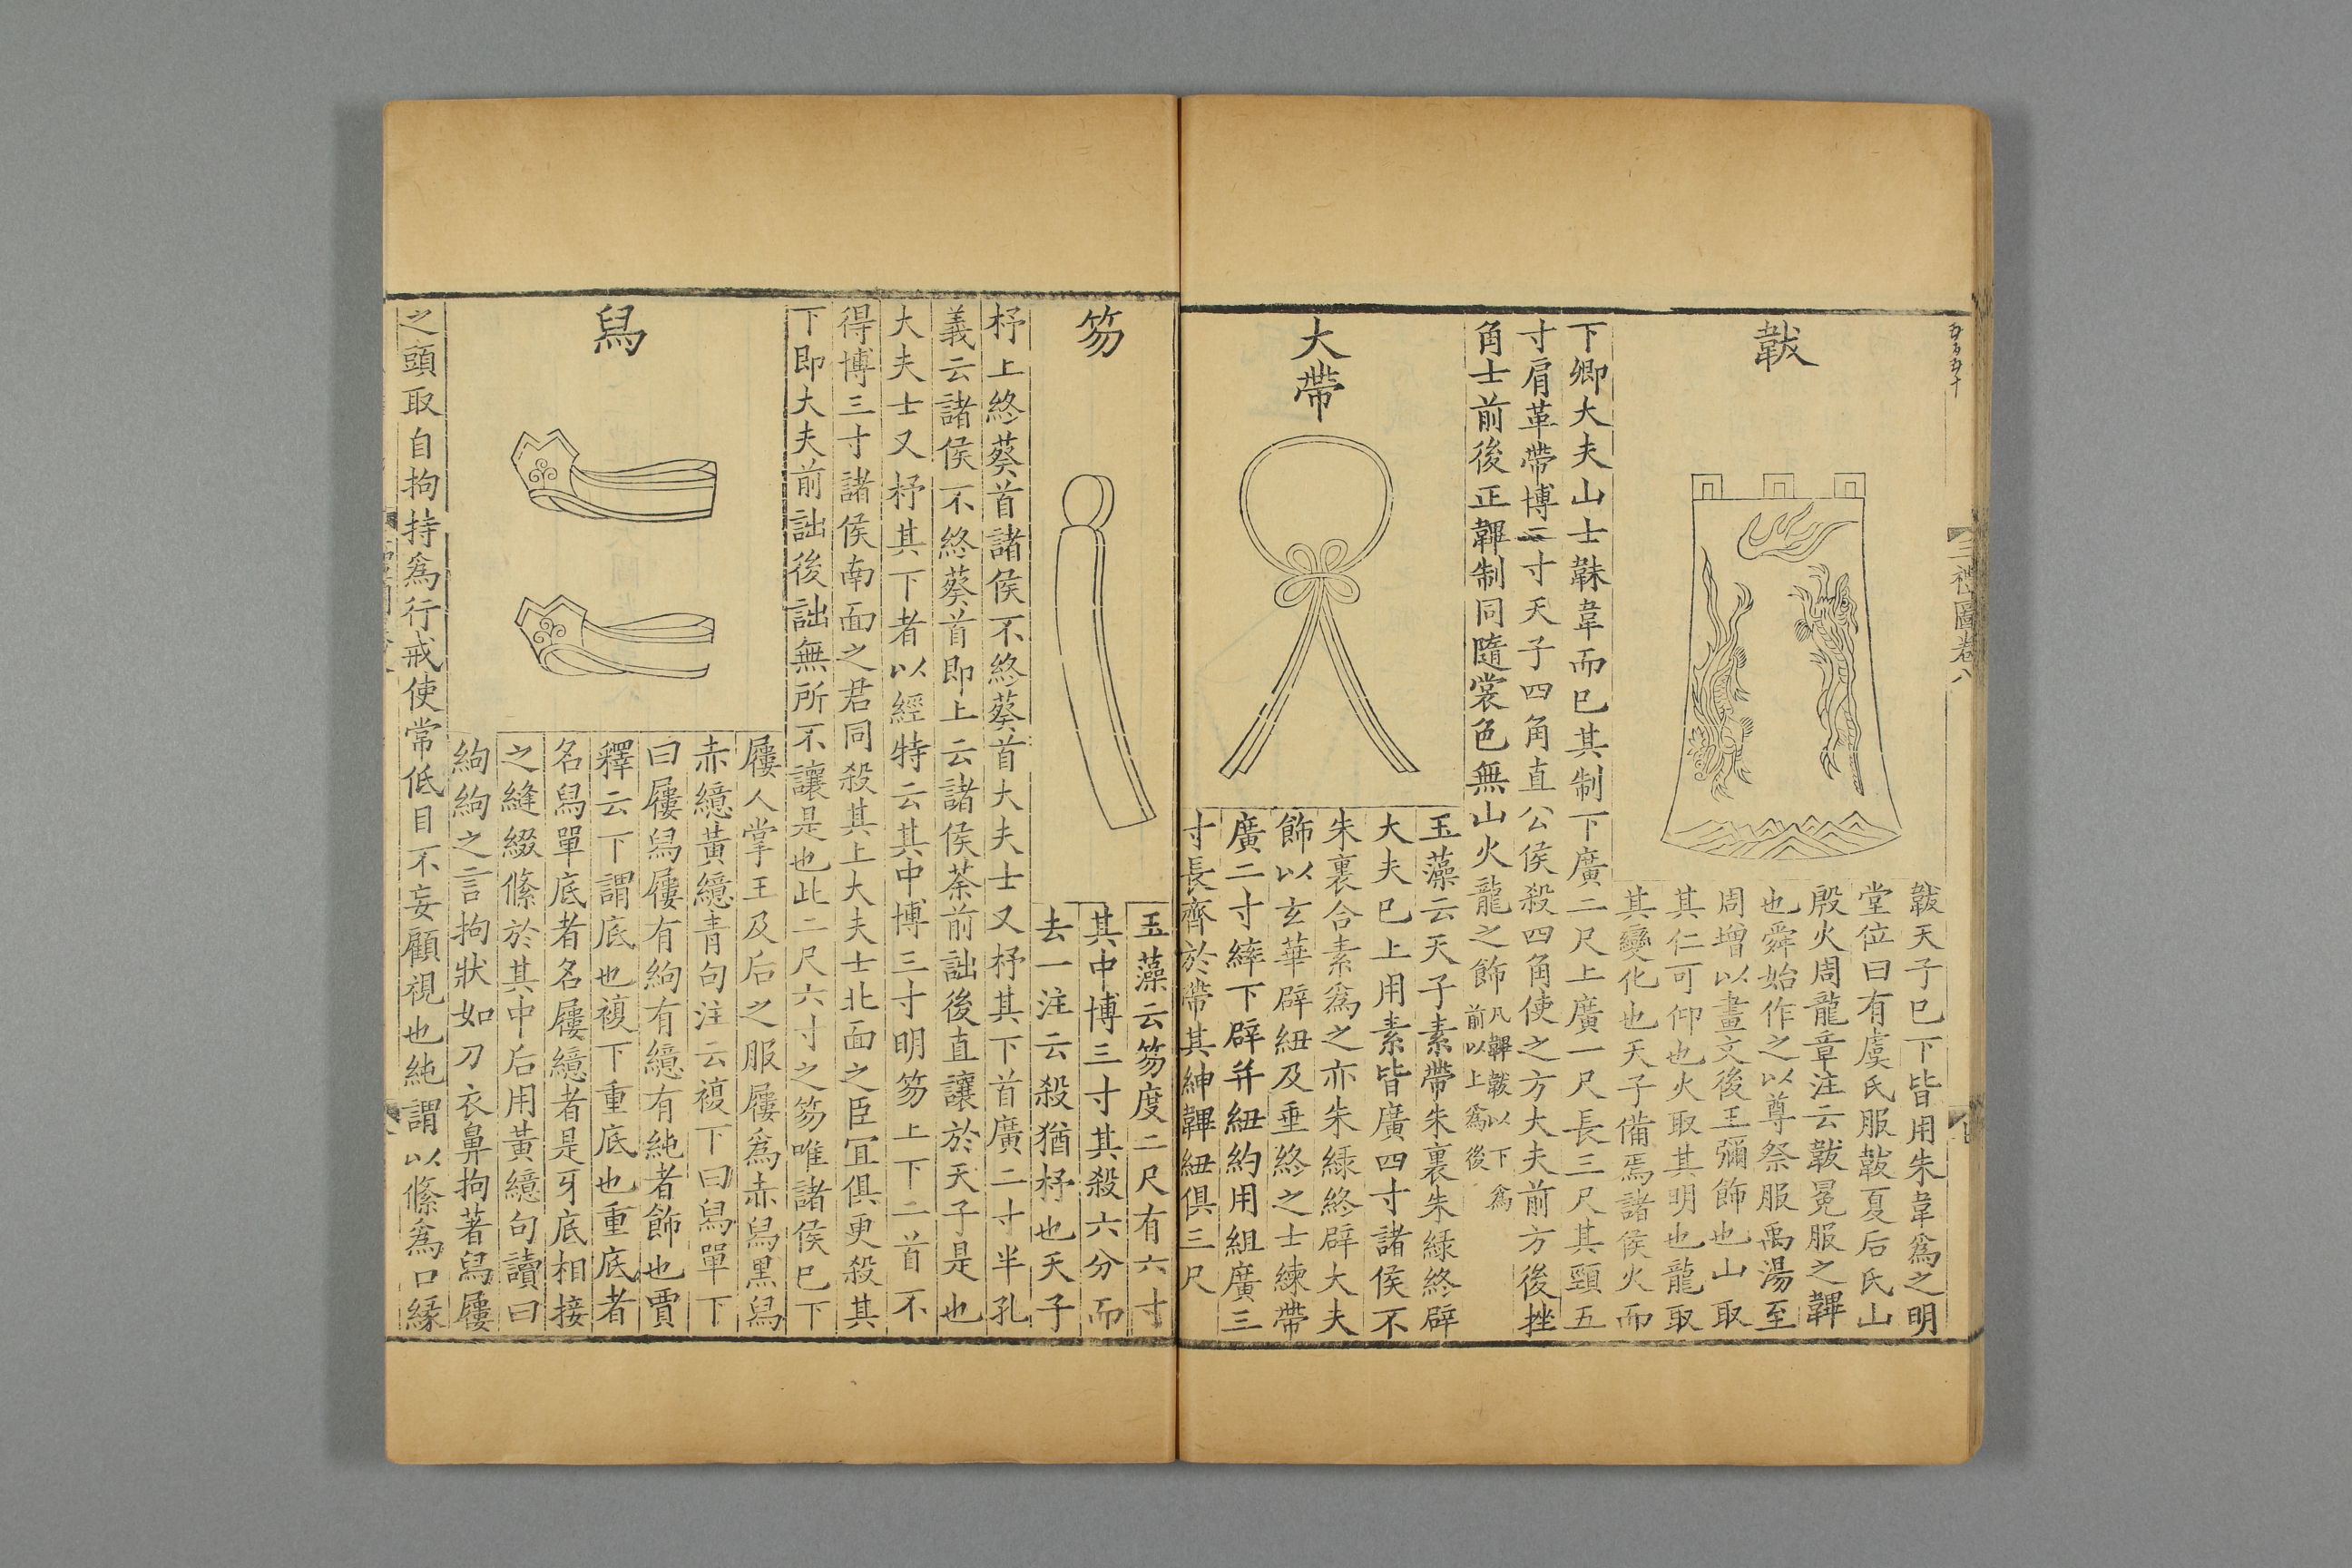 韍
韍天子已下皆用朱韋爲之明
堂位曰有虞氏服韍夏后氏山
殷火周龍章注云韍冕服之韠
也舜始作之以尊祭服禹湯至
周增以畫文後王彌飾也山取
其仁可仰也火取其明也龍取
其變化也天子備焉諸侯火而
下卿大夫山士韎韋而已其制下廣二尺上廣一尺長三尺其頸五
寸肩革帶博二寸天子四角直公侯殺四角使之方大夫前方後挫
角士前後正韠制同隨裳色無山火龍之飾凡韠韍以下爲
前以上爲後
大帶
玉藻云天子素帶朱裏朱綠終辟
大夫已上用素皆廣四寸諸侯不
朱裏合素爲之亦朱綠終辟大夫
飾以玄華辟紐及垂終之士練帶
廣二寸繂下辟并紐約用組廣三
寸長齊於帶其紳韠紐俱三尺
三禮圖卷八
笏
玉藻云笏度二尺有六寸
其中博三寸其殺六分而
去一注云殺猶杼也天子
杼上終葵首諸侯不終葵首大夫士又杼其下首廣二寸半孔
義云諸侯不終葵首即上云諸侯荼前詘後直讓於天子是也
大夫士又杼其下者以經特云其中博三寸明笏上下二首不
得博三寸諸侯南面之君同殺其上大夫士北面之臣冝俱更殺其
下即大夫前詘後詘無所不讓是也此二尺六寸之笏唯諸侯已下
舄
屨人掌王及后之服屨爲赤舄黑舄
赤繶黃繶青句注云複下曰舄單下
曰屨舄屨有絇有繶有純者飾也賈
釋云下謂底也複下重底也重底者
名舄單底者名屨繶者是牙底相接
之縫綴絛於其中后用黃繶句讀曰
絇絇之言拘狀如刀衣鼻拘著舄屨
之頭取自拘持爲行戒使常低目不妄顧視也純謂以絛爲口緣